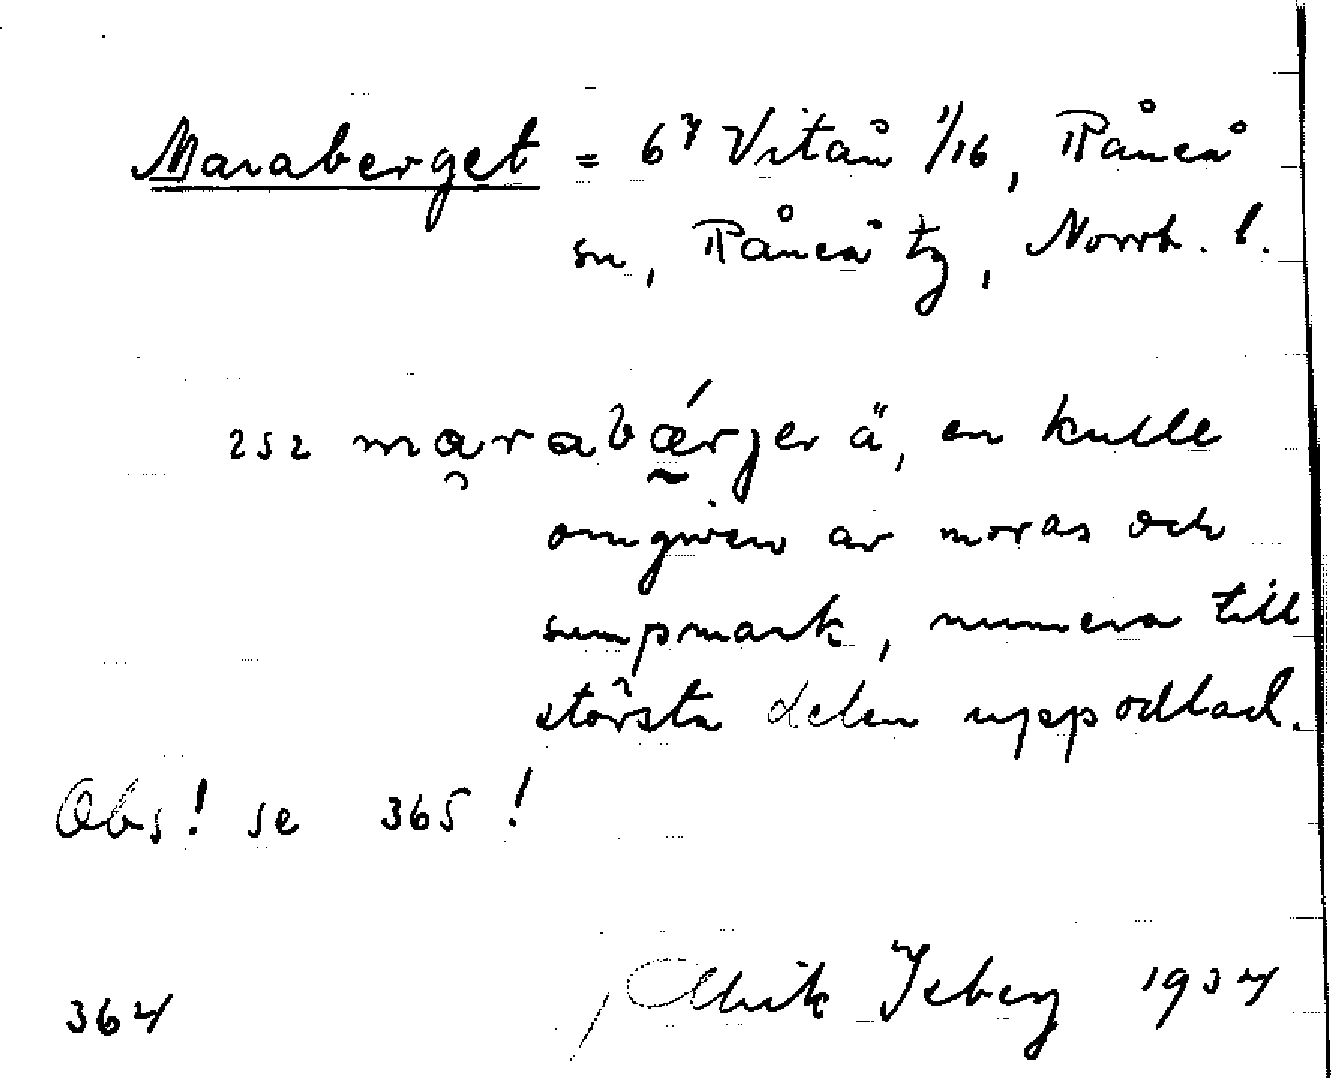 Maraberget = 6⁷ Vitån 1/16, Råneå
sn, Råneå tg, Norrb. l.
252 marabǽrjer ä, en kulle
omgiven av moras och
sumpmark, numera till
största delen uppodlad.
Obs! se 365!
Ulrik Isberg 1934
364